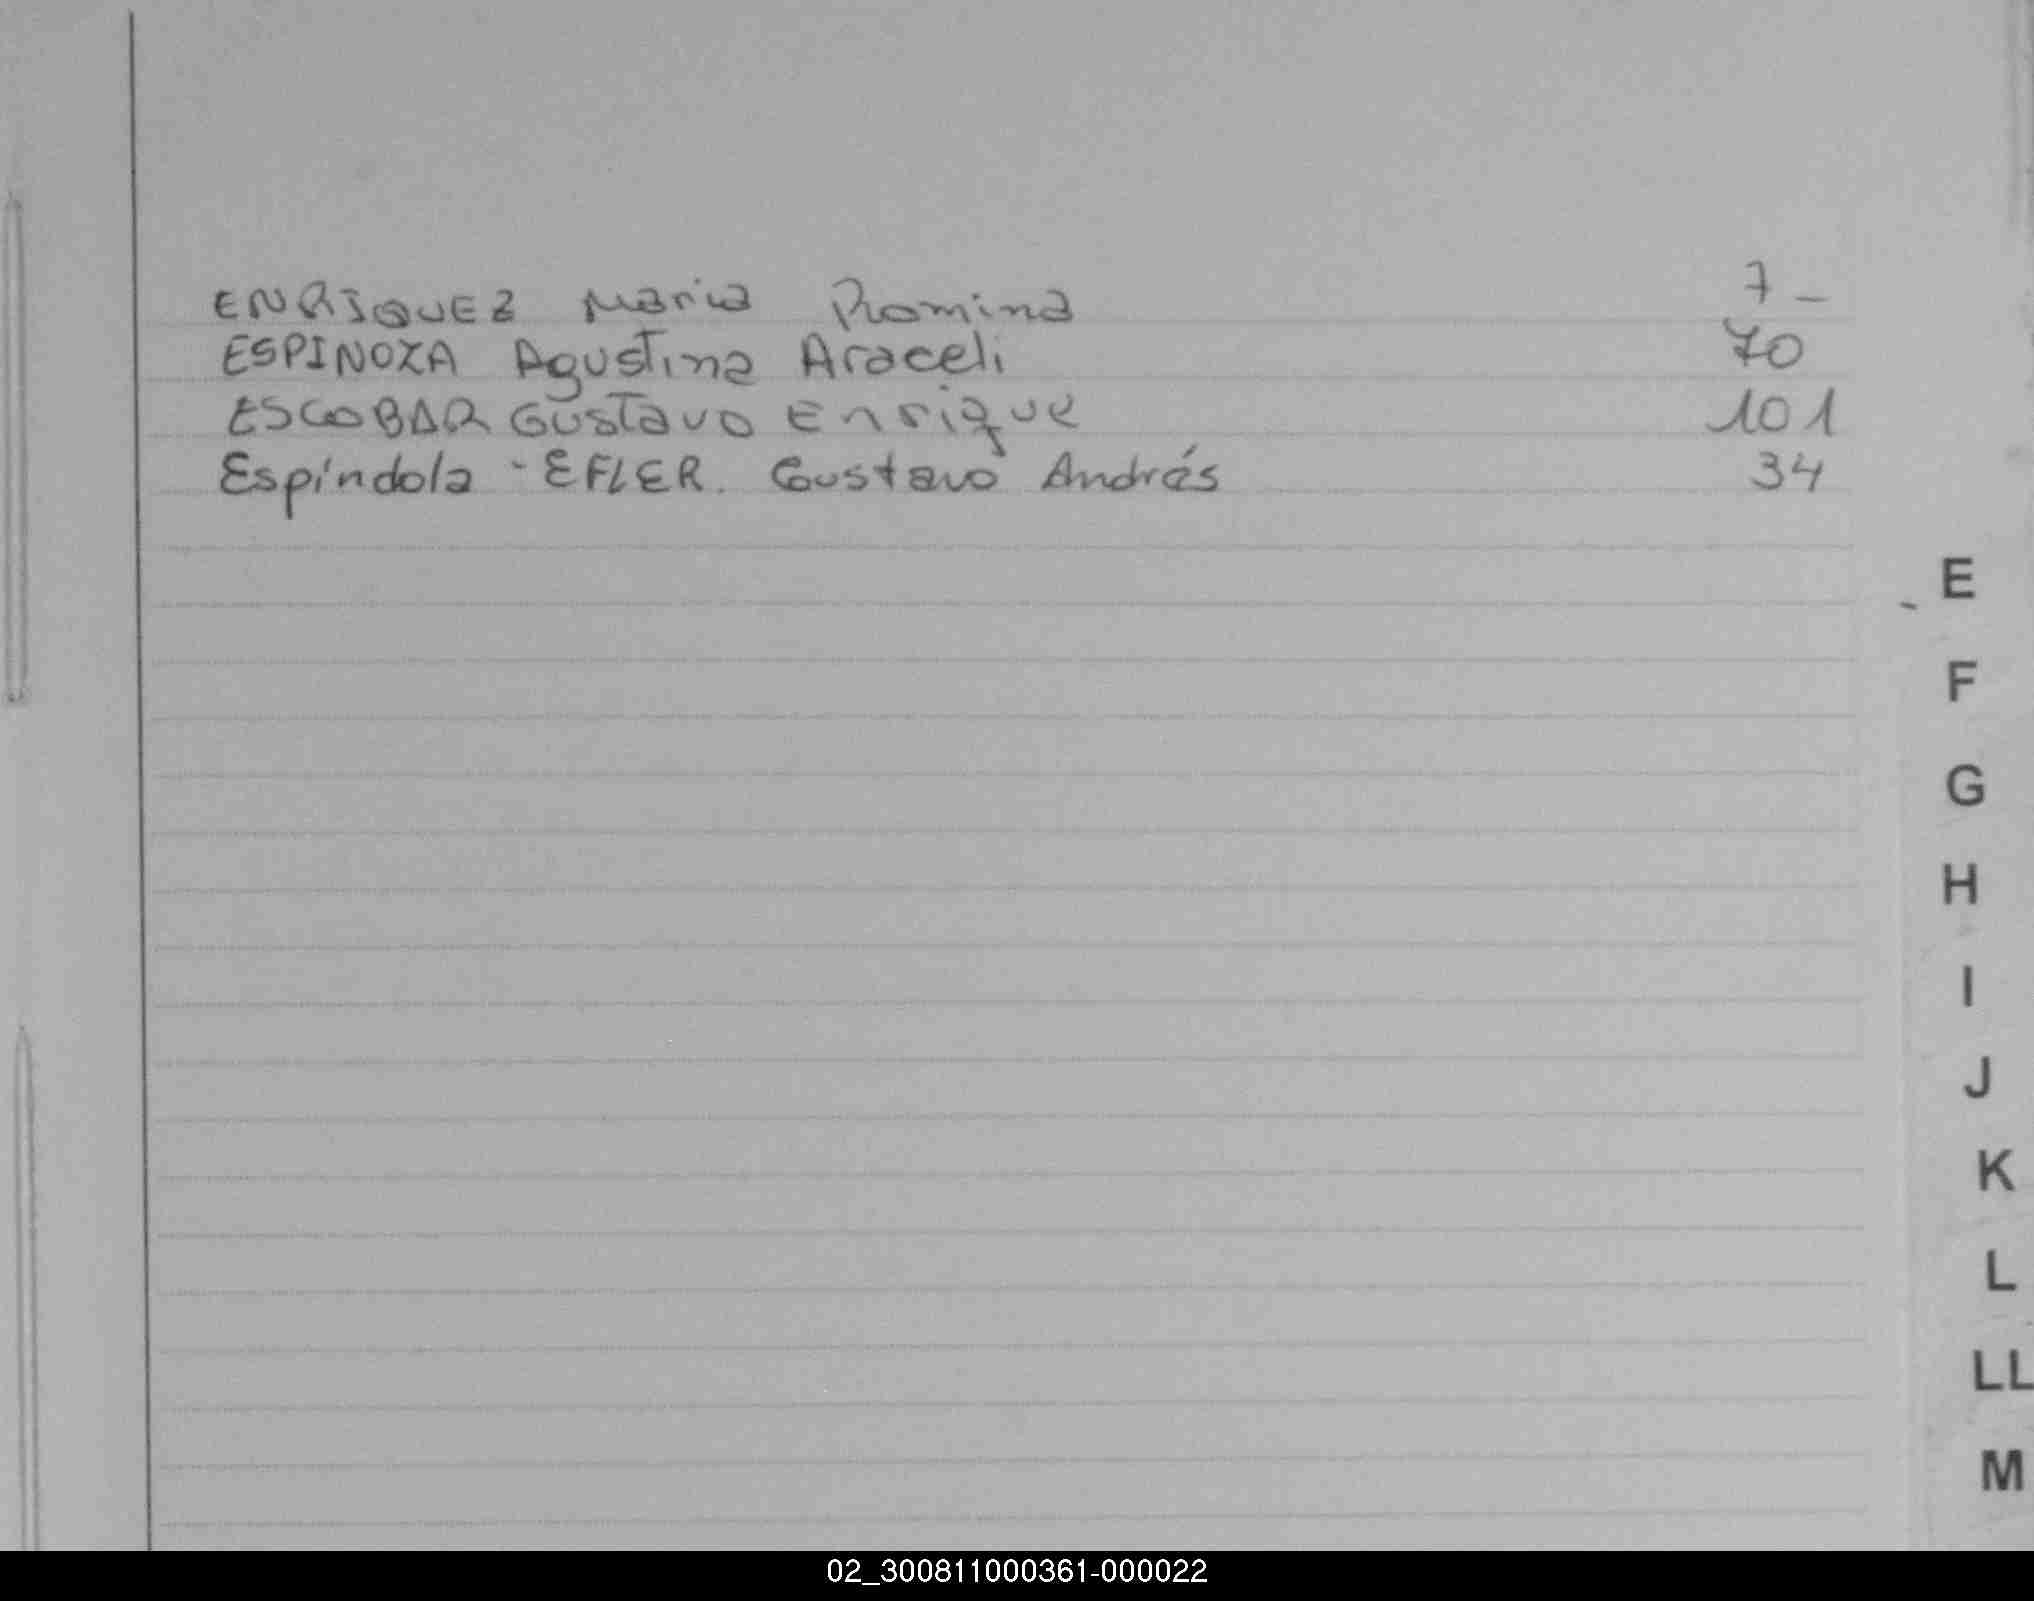 ENRIQUEZ Maria Romina 7_
ESPINOZA Agustina Araceli 70
ESCOBAR Gustavo Enrique 101
Espíndola - EFLER. Gustavo Andrés 34
E
F
G
H
I
J
K
L
LL
M
02_300811000361-000022